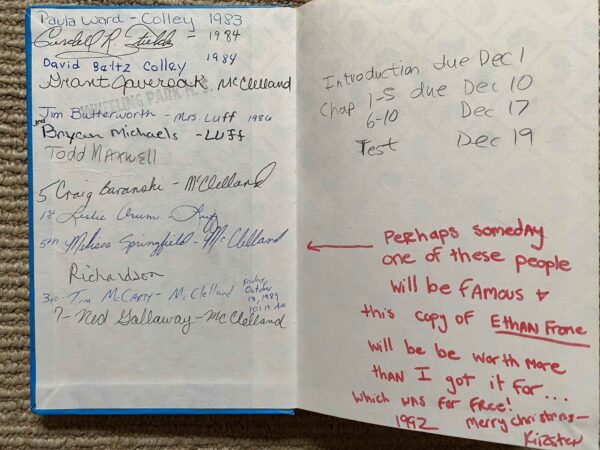 Paula Ward - Colley 1983
Cundell R. Fields - 1984
David Beltz Colley 1984
Grant Overpak McClelland
WHEELING PARK H. S.
Jim Butterworth - Mrs. Luff 1986
3rd Bryan Michaels - LUFF
Todd Maxwell
5 Craig Baranski - McClelland
1st Leslie Orum - Luff
5th Melissa Springfield - McClelland
Richardson
3rd - Tim McCarty - McClelland Friday October 13, 1989 10:13 AM
7 - Ned Gallaway - McClelland
Introduction due Dec 1
Chap 1-5 due Dec 10
6-10 Dec 17
Test Dec 19
Perhaps someday
one of these people
will be famous &
this copy of Ethan Frome
will be be worth more
than I got it for...
which was for free!
1992 Merry christmas-
Kirsten